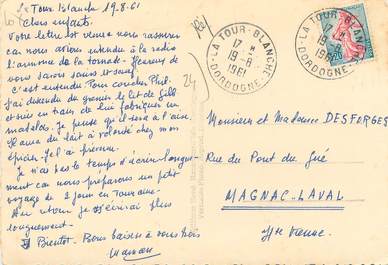 La Tour Blanche 19.8.61
Chers enfants.
Votre lettre est venue nous rassurer
car nous avions entendu à la radio
l'annonce de la tornade. Heureux de
vous savoir sains et saufs.
C'est entendu Pour coucher Phil.
J'ai descendu du grenier le lit de
et suis en train de lui fabriquer un
matelas. Je pense qu'il sera à l'aise.
Il aura du lait à volonté chez mon
épicier. Je l'ai prévenu.
Je n'ai pas le temps d'écrire longue-
ment car nous préparons un petit
voyage de 2 jours en Touraine.
Au retour je t'écrirai plus
longuement.
Bientôt. Bons baisers à vous trois
Maman
24
LA TOUR-BLANCHE
17 H
19-8
1961
DORDOGNE
LA TOUR-BLANCHE
17 H
19-8
1961
DORDOGNE
Monsieur et Madame DESFORGES
Rue du Pont du Gué
MAGNAC-LAVAL
Hte Vienne